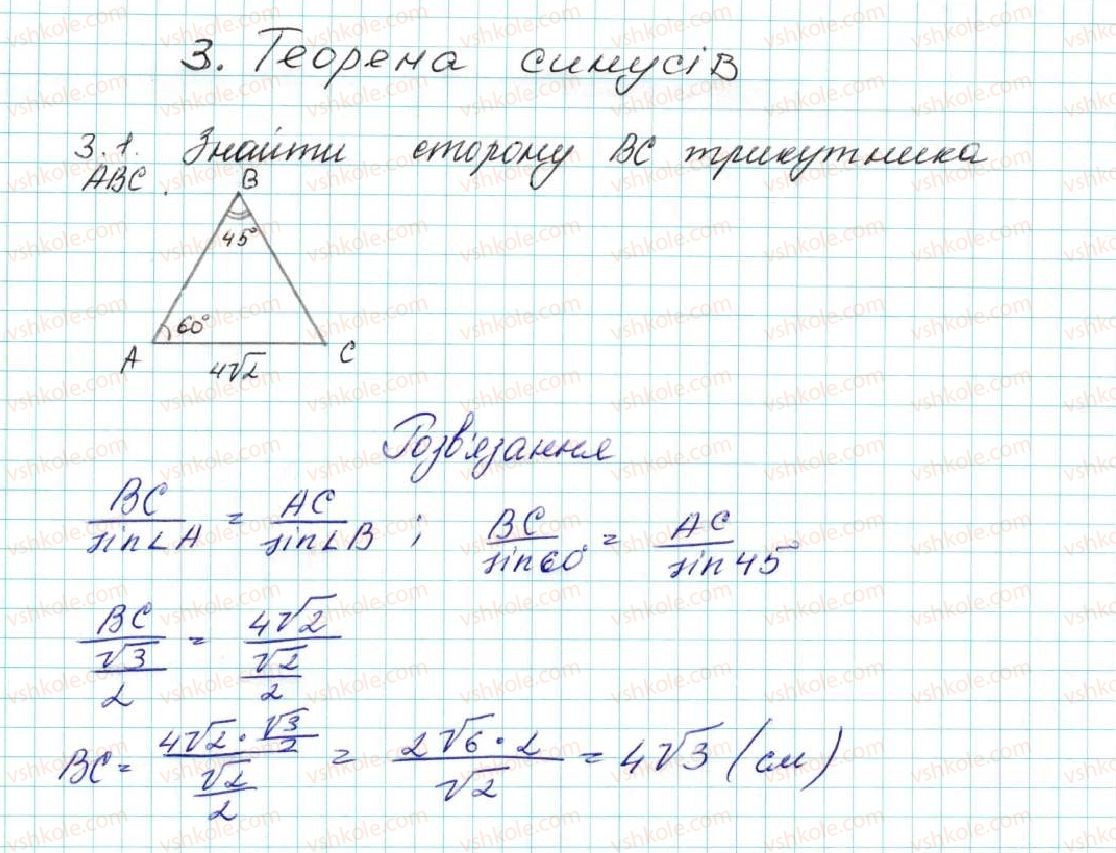 3. Теорема синусів
3.1. Знайти сторону BC трикутника
ABC.
B
45°
60°
A
C
4√2
Розв'язання
BC/sin∠A = AC/sin∠B ; BC/sin60° = AC/sin45°
BC/(√3/2) = 4√2/(√2/2)
BC = (4√2 · √3/2)/(√2/2) = (2√6 · 2)/√2 = 4√3 (см)
vshkole.com